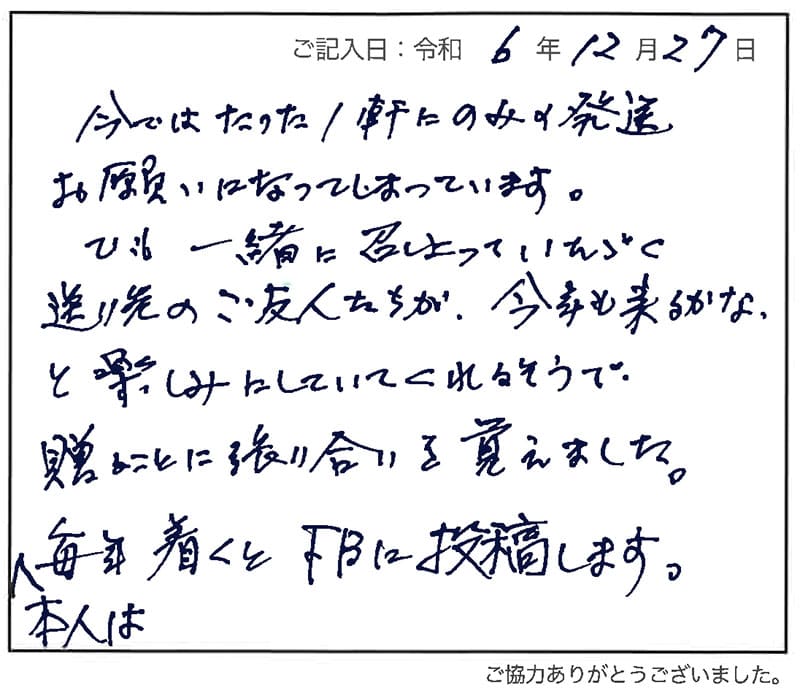 ご記入日：令和 6 年 12 月 27 日
今ではたった1軒にのみの発送
お願いになってしまっています。
でも 一緒に召し上っていただく
送り先のご友人たちが、今年も来るかな、
と楽しみにしていてくれるそうで、
贈ることに張り合いを覚えました。
毎年着くとFBに投稿します。
本人は
ご協力ありがとうございました。